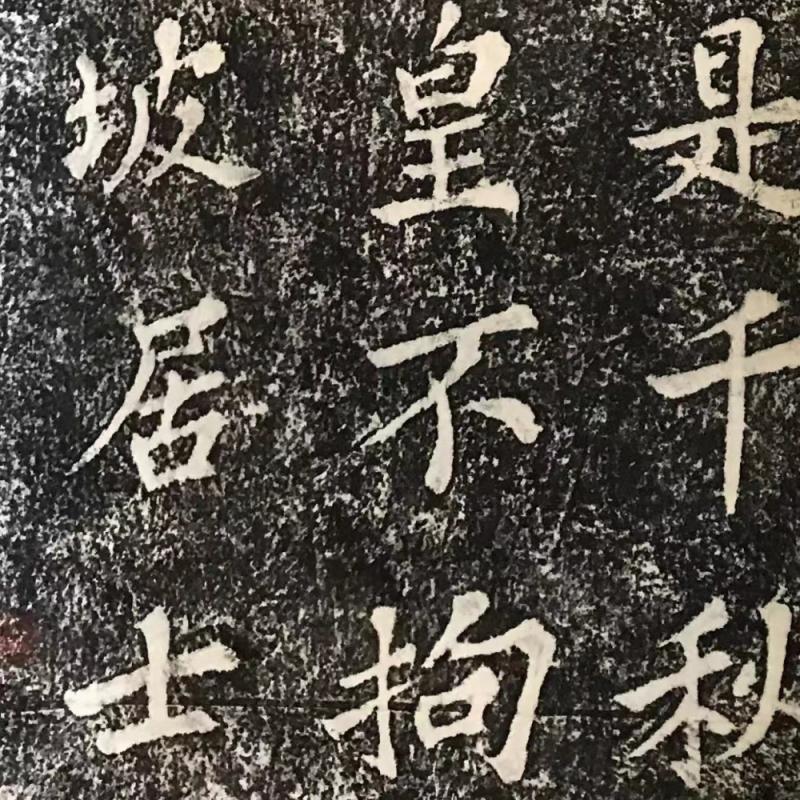 是千秋
皇不拘
坡居士